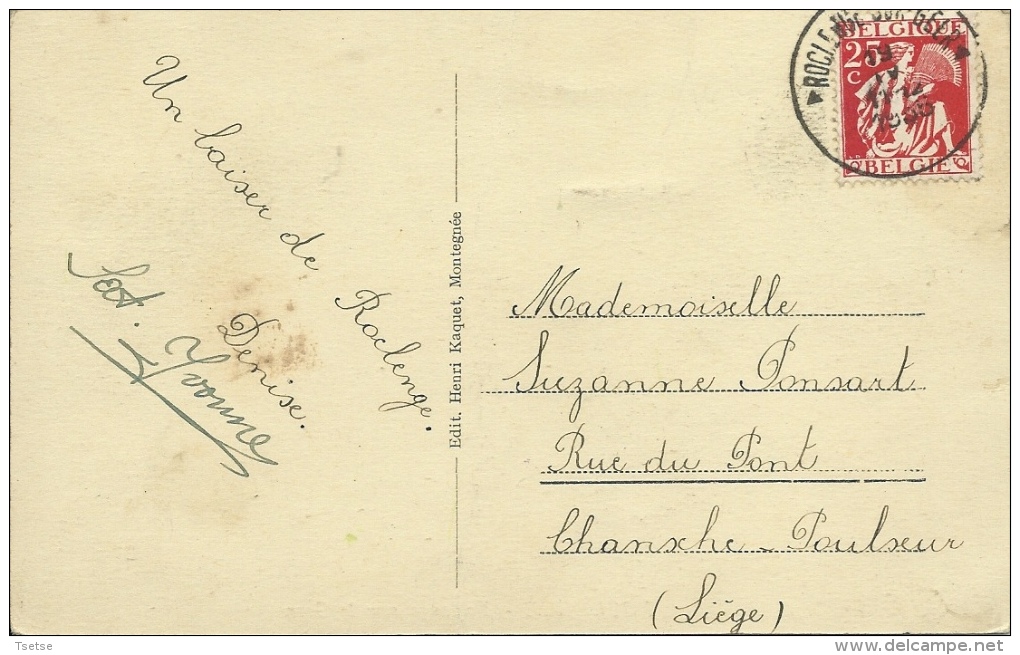 Un baiser de Roclenge.
Denise.
Yvonne
Edit. Henri Kaquet, Montegnée
BELGIQUE
25
C
BELGIE
ROCLENGE-SUR-GEER
Mademoiselle
Suzanne Ponsart
Rue du Pont
Chanxhe-Poulseur
(Liége)
Tsetse
delcampe.net